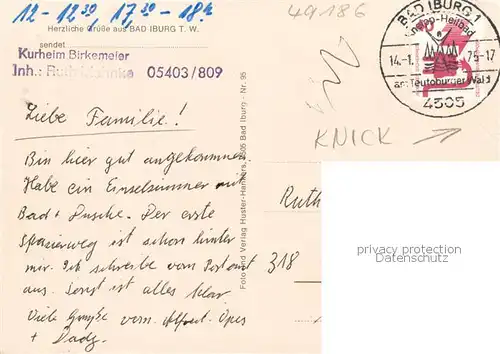 12-12³⁰, 17³⁰-18ʰ
49186
Herzliche Grüße aus BAD IBURG T. W.
sendet
Kurheim Birkemeier
Inh.: Ruth 05403/809
BAD IBURG 1
Kneipp-Heilbad
14.-1. 75-17
am Teutoburger Wald
4505
KNICK
Liebe Familie!
Bin hier gut angekommen.
Habe ein Einzelzimmer mit
Bad + Dusche. Der erste
Spazierweg ist schon hinter
mir. Ich schreibe vom Postamt
aus. Sonst ist alles klar
Viele Grüße vom
Foto und Verlag Huster-Hankers, 4505 Bad Iburg - Nr. 95
Ruth
318
personal data protection
www.oldthing.de